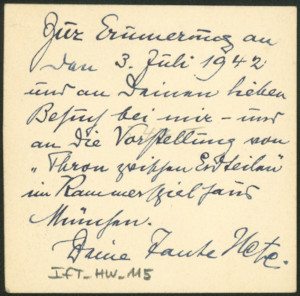 Zur Erinnerung an
den 3. Juli 1942
und an Deinen lieben
Besuch bei mir – und
an die Vorstellung von
„Thron zwischen Erdteilen"
im Kammerspielhaus
München.
Deine Tante
IfT_HW_115